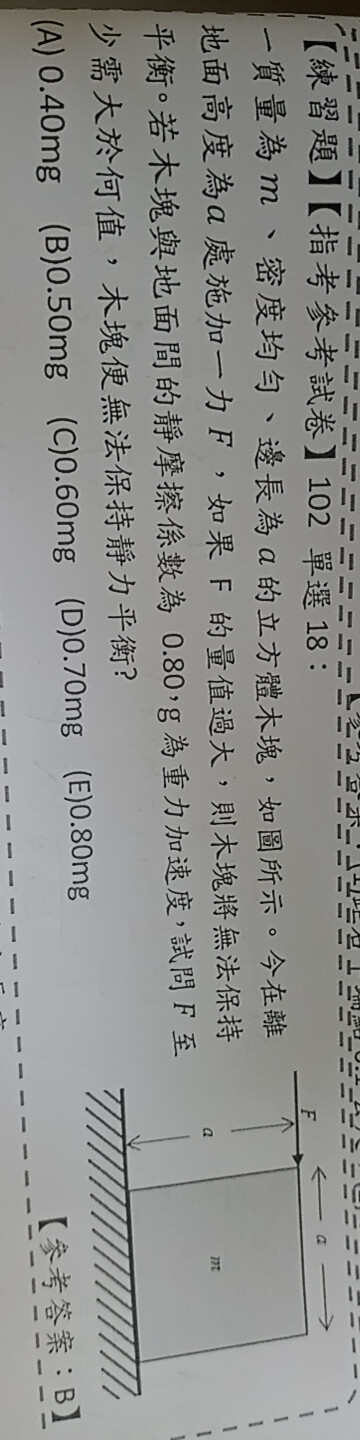 【練習題】【指考參考試卷】102 單選 18：
一質量為 m、密度均勻、邊長為 a 的立方體木塊，如圖所示。今在離
地面高度為 a 處施加一力 F，如果 F 的量值過大，則木塊將無法保持
平衡。若木塊與地面間的靜摩擦係數為 0.80，g 為重力加速度，試問 F 至
少需大於何值，木塊便無法保持靜力平衡？
(A) 0.40mg (B)0.50mg (C)0.60mg (D)0.70mg (E)0.80mg
F
a
a
m
【參考答案：B】